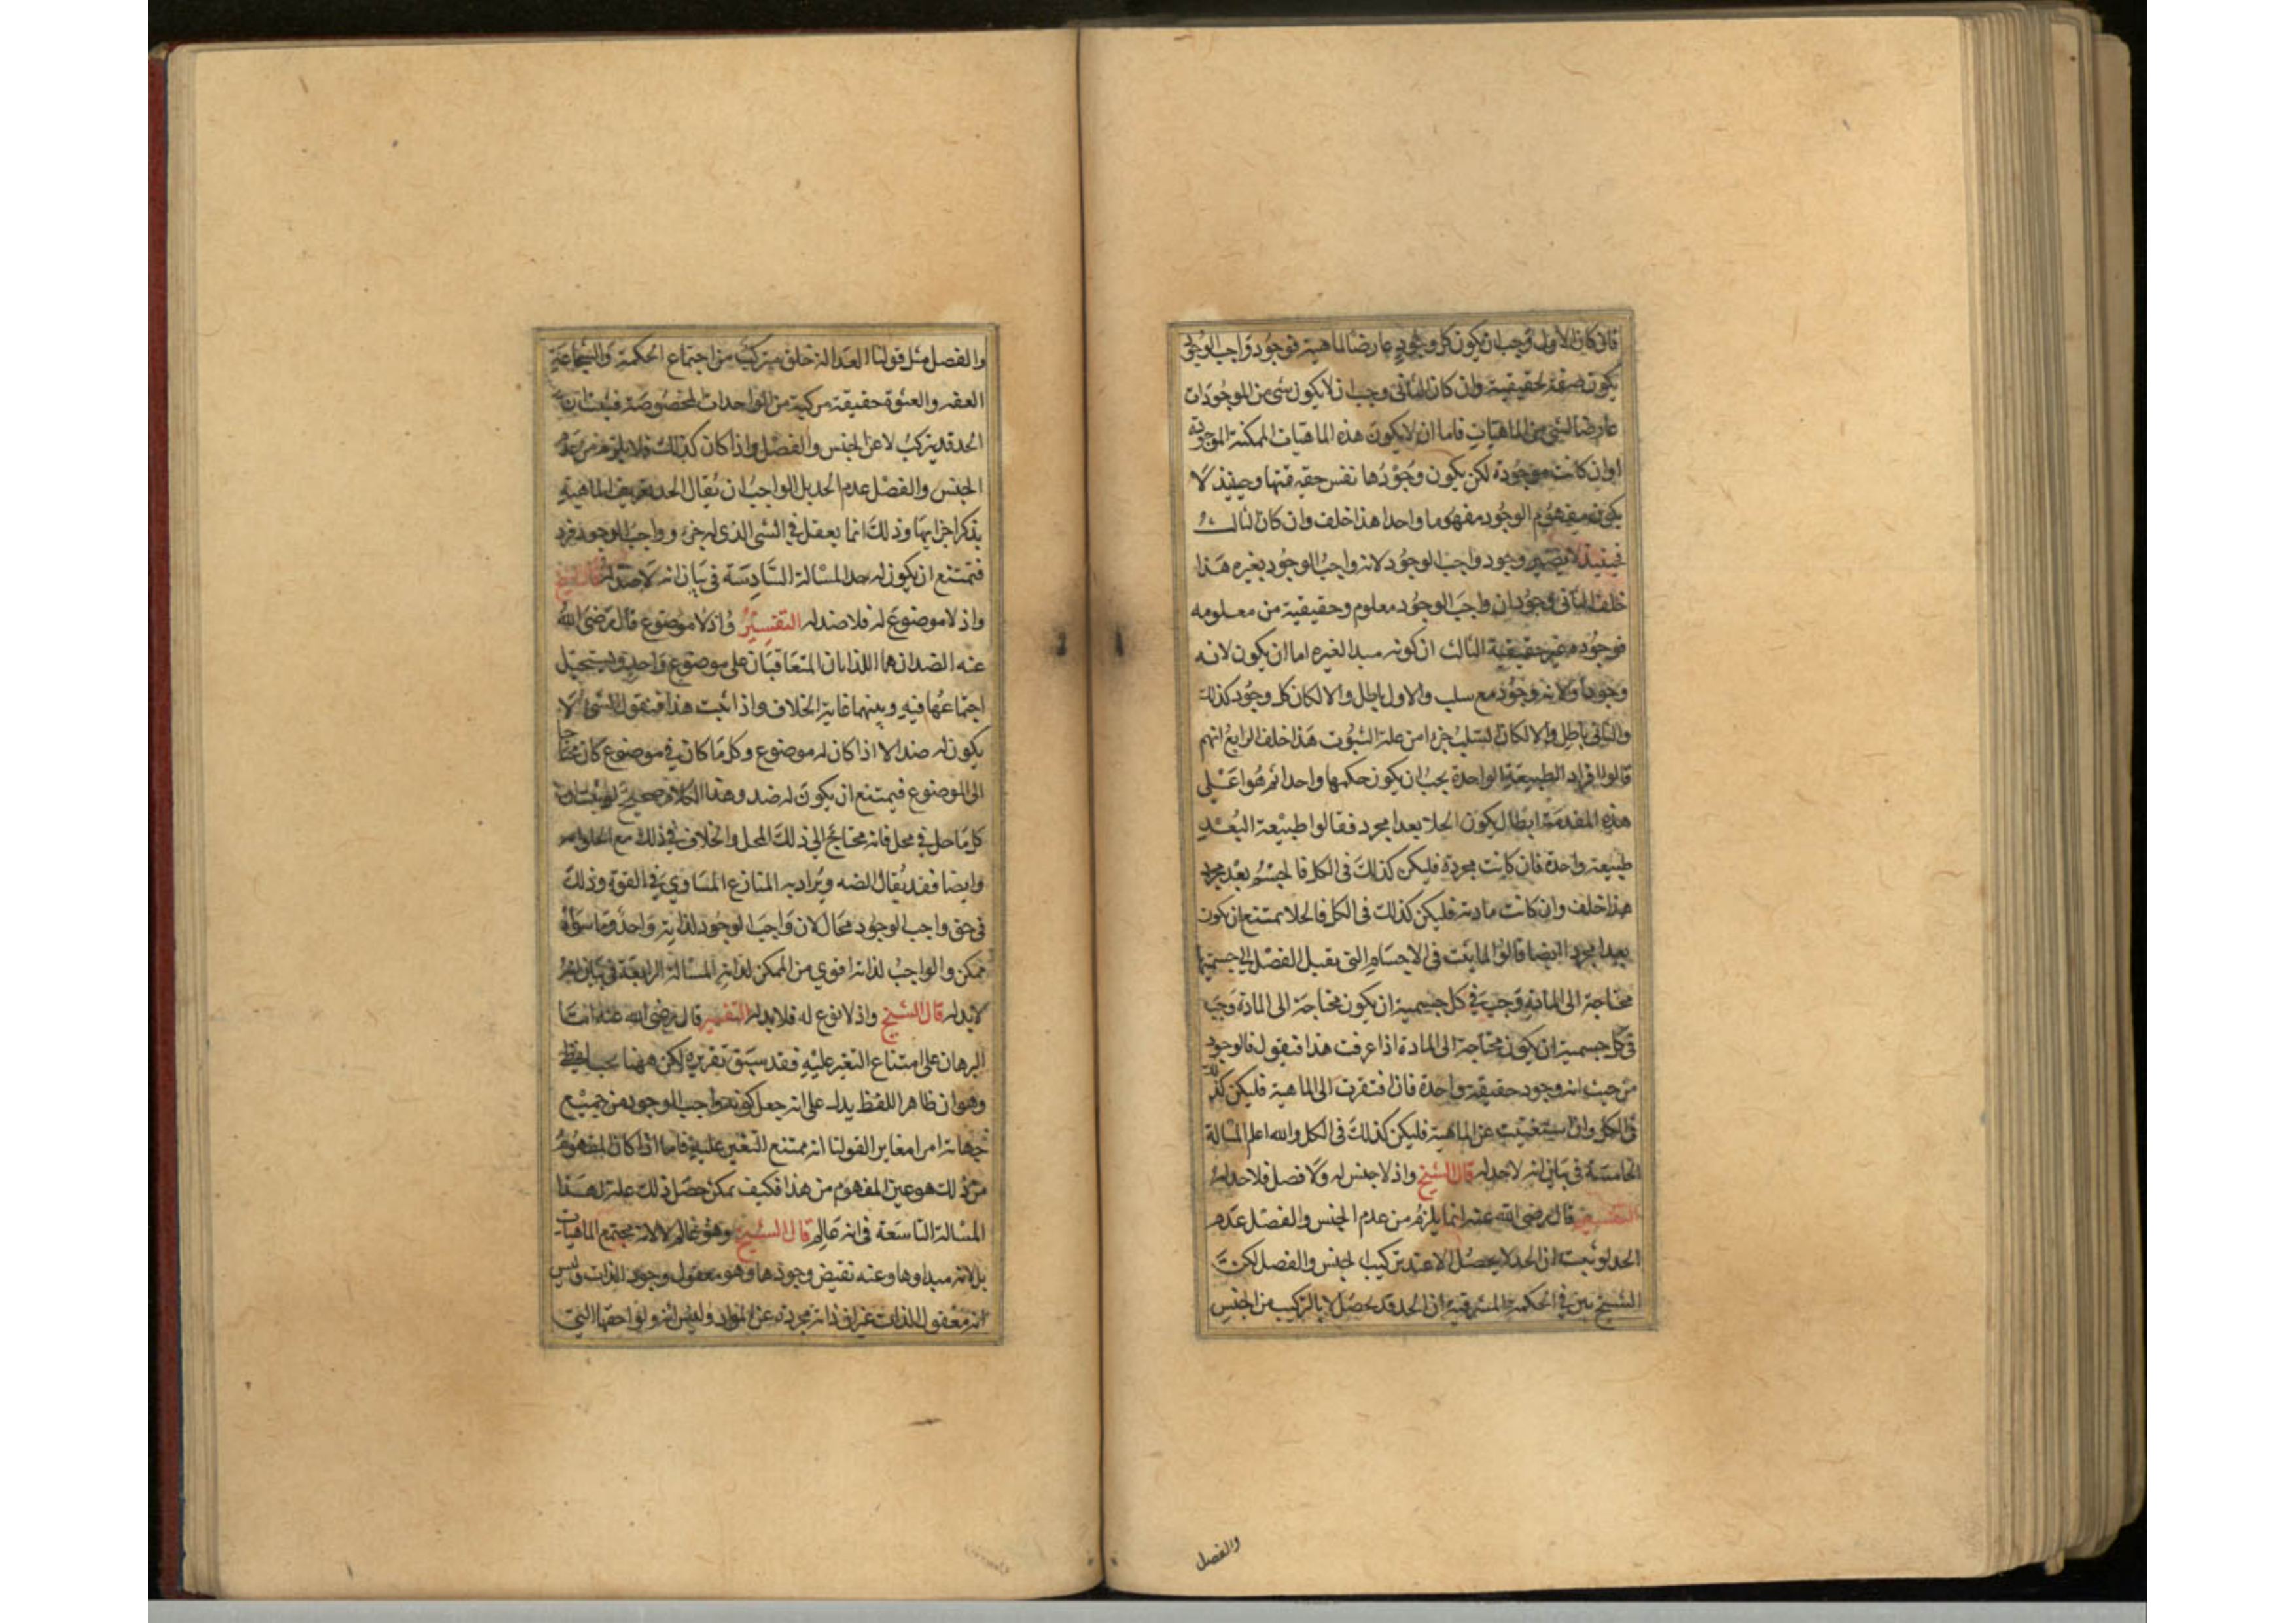 فان كان الاول وجب ان يكون كل وجود عارضا لماهية فوجود واجب الوجود
يكون صفة لحقيقية وان كان الثانى وجب ان لا يكون شى من الموجودات
عارضا لشى من الماهيات فاما ان لا يكون هذه الماهيات الممكنة الموجودة
او ان كانت موجودة لكن يكون وجودها نفس حقيقتها وحينئذ لا
يكون مفهوم الوجود مفهوما واحدا هذا خلف وان كان الثالث
فحينئذ لا يصير وجود واجب الوجود لانه واجب الوجود بغيره هذا
خلف الثانى وجود ان واجب الوجود معلوم وحقيقية من معلومه
فوجوده غير حقيقية الثالث ان كونه مبدا لغيره اما ان يكون لانه
وجود او لانه وجود مع سلب والاول باطل والا لكان كل وجود كذلك
والثانى باطل والا لكان السلب جزءا من علة الثبوت هذا خلف الرابع انهم
قالوا افراد الطبيعة الواحدة يجب ان يكون حكمها واحدا ثم هوا على
هذه المقدمة ابطال كون الخلا بعدا مجرد فقالوا طبيعة البعد
طبيعة واحدة فان كانت مجردة فليكن كذلك فى الكل فالجسم بعد مجرد
هذا خلف وان كانت مادية فليكن كذلك فى الكل فالخلا يمتنع ان يكون
بعدا مجردا ايضا قالوا لما ثبت فى الاجسام التى تقبل الفصل ان جسميتها
محتاجة الى المادة وجب فى كل جسمية ان يكون محتاجة الى المادة وجب
فى كل جسمية ان يكون محتاجة الى المادة اذا عرفت هذا فنقول فالوجود
من حيث انه وجود حقيقة واحدة فان افتقرت الى الماهية فليكن كذلك
فى الكل وان استغنيت عن الماهية فليكن كذلك فى الكل والله اعلم المسالة
الخامسة فى بيان انه لا حد له قال الشيخ واذ لا جنس له ولا فصل فلا حد له
التفسير قال رضى الله عنه انما يلزم من عدم الجنس والفصل عدم
الحد لو ثبت ان الحد لا يحصل الا عند تركيب الجنس والفصل لكن
الشيخ بين فى الحكمة المشرقية ان الحد قد يحصل لا بالتركيب من الجنس
والفصل
والفصل مثل قولنا العدالة خلق يتركب من اجتماع الحكمة والشجاعة
العفه والعشوة حقيقة مركبة من الواحدات المخصوصة فثبت ان
الحد قد يتركب لا عن الجنس والفصل واذا كان كذلك فلا يلزم من عدم
الجنس والفصل عدم الحد بل الواجب ان يقال الحد تعريف الماهية
بذكر اجزايها وذلك انما يعقل فى الشى الذى له جزء وواجب الوجود فرد
فيمتنع ان يكون له حد المسالة السادسة فى بيان انه لا ضد له قال الشيخ
واذ لا موضوع له فلا ضد له التفسير واذ لا موضوع قال رضى الله
عنه الضدان هما اللذان المتعاقبان على موضوع واحد ويستحيل
اجتماعهما فيه وبينهما غاية الخلاف واذا ثبت هذا فنقول الشى لا
يكون له ضد الا اذا كان له موضوع وكل ما كان فى موضوع كان محتاجا
الى الموضوع فيمتنع ان يكون له ضد وهذا الكلام صحيح لو ثبت ان
كل ما حل فى محل فانه محتاج الى ذلك المحل والخلاف فى ذلك مع
وايضا فقد يقال الضد ويراد به المنازع المساوي فى القوة وذلك
فى حق واجب الوجود محال لان واجب الوجود لذاته واحد وما سواه
ممكن والواجب لذاته اقوي من الممكن لذاته المسالة الرابعة فى بيان انه
لا ند له قال الشيخ واذ لا نوع له فلا ند له التفسير قال رضى الله عنه اما
البرهان على امتناع التغير عليه فقد سبق تقريره لكن ههنا بحث لفظى
وهو ان ظاهر اللفظ يدل على انه جعل كونه واجب الوجود من جميع
جهاته امرا مغايرا لقولنا انه ممتنع التغير عليه فاما اذا كان المفهوم
من ذلك هو عين المفهوم من هذا فكيف يمكن جعل ذلك علة لهذا
المسالة التاسعة فى انه عالم قال الشيخ وهو عالم لا لانه مجتمع الماهيات
بل لانه مبداوها وعنه تفيض وجودها وهو معقول وجود الذات وليس
انه معقول الذات غير ان ذاته مجردة عن المواد وليس انه ولواحقها التى